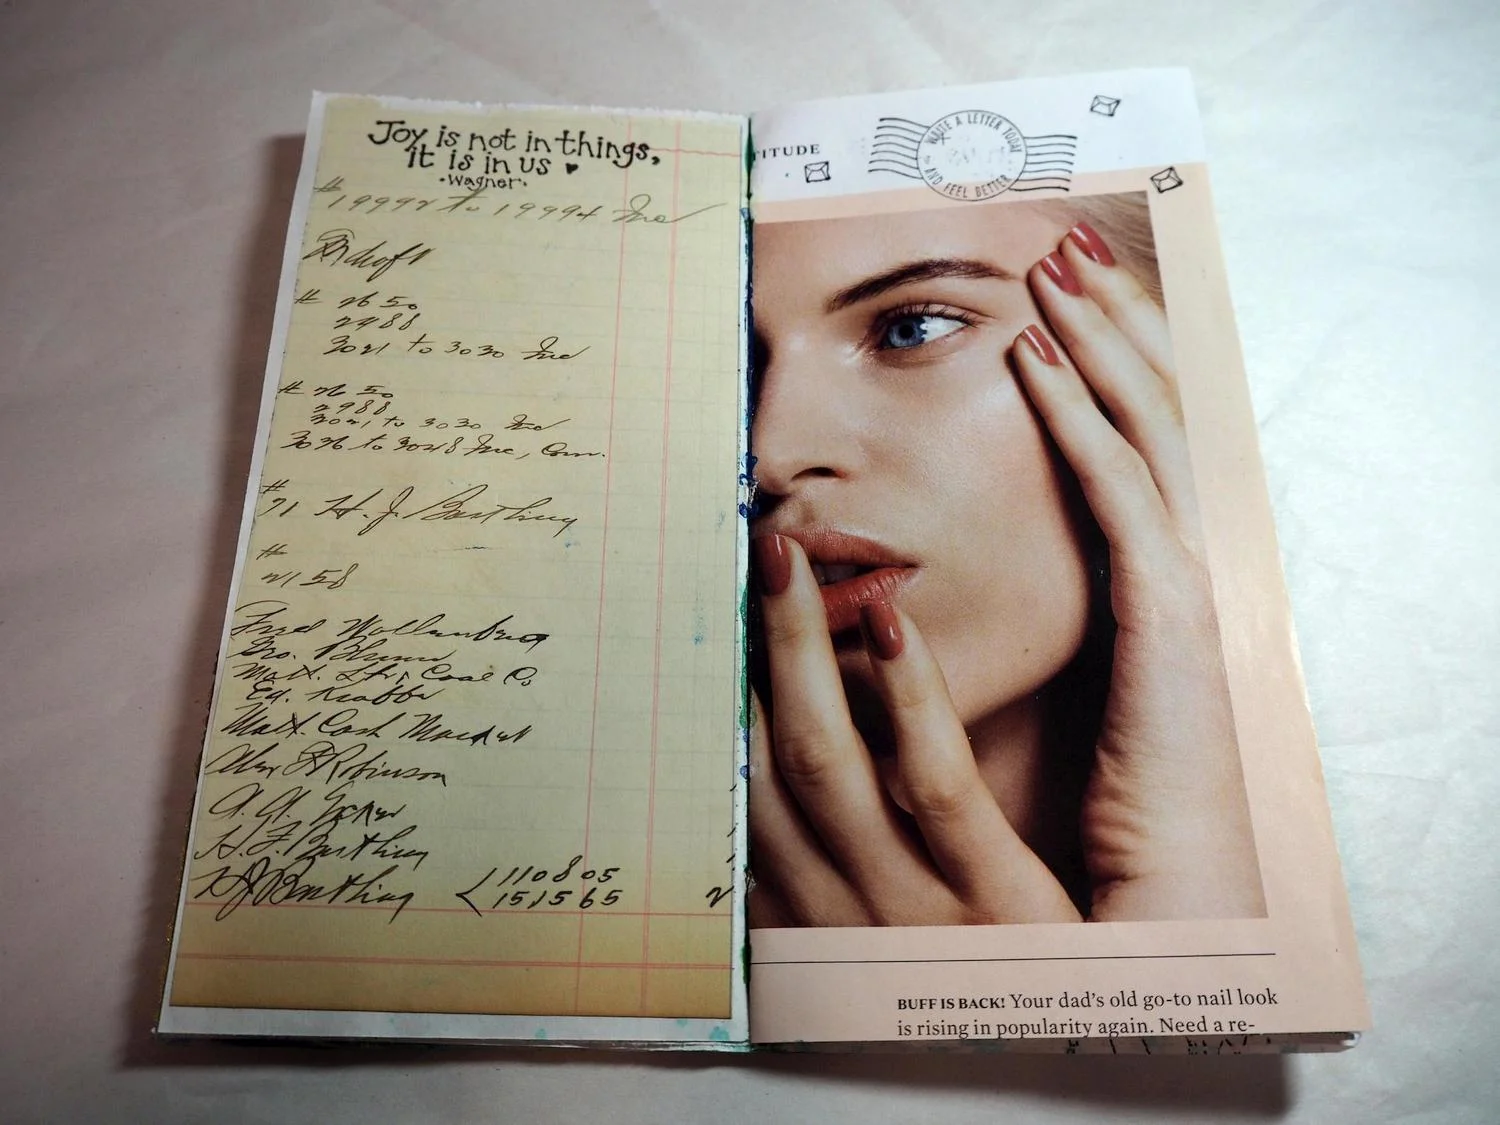 Joy is not in things,
it is in us ♥
-Wagner-
#
19992 to 19994 Inc
# 2650
2988
3021 to 3030 Inc
# 2650
2988
3021 to 3030 Inc
3036 to 3048 Inc, Com.
#
71 H. J. Barthing
#
2158
Fred
Geo. Blum
Matt. Coal Co
Ed.
Matt. Cash Market
Alex Robinson
H. F. Barthing
H J Barthing < 110805
151565
TITUDE
WRITE A LETTER TODAY
AND FEEL BETTER
BUFF IS BACK! Your dad's old go-to nail look
is rising in popularity again. Need a re-